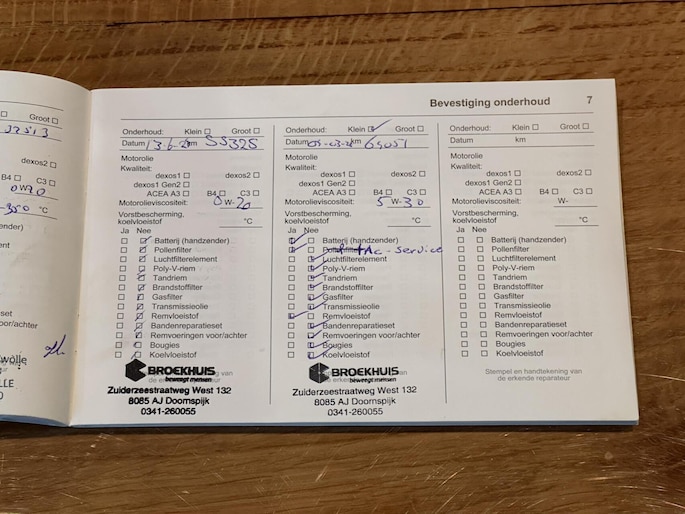 Bevestiging onderhoud 7
Groot
dexos2
C3
°C
Onderhoud: Klein Groot
Datum 13-6- km 55325
Motorolie
Kwaliteit:
dexos1 dexos2
dexos1 Gen2
ACEA A3 B4 C3
Motorolieviscositeit: 0 W- 20
Vorstbescherming,
koelvloeistof °C
Ja Nee
Batterij (handzender)
Pollenfilter
Luchtfilterelement
Poly-V-riem
Tandriem
Brandstoffilter
Gasfilter
Transmissieolie
Remvloeistof
Bandenreparatieset
Remvoeringen voor/achter
Bougies
Koelvloeistof
BROEKHUIS
beweegt mensen
Zuiderzeestraatweg West 132
8085 AJ Doornspijk
0341-260055
Onderhoud: Klein Groot
Datum km
Motorolie
Kwaliteit:
dexos1 dexos2
dexos1 Gen2
ACEA A3 B4 C3
Motorolieviscositeit: 5 W- 30
Vorstbescherming,
koelvloeistof °C
Ja Nee
Batterij (handzender)
Pollenfilter + Ac-service
Luchtfilterelement
Poly-V-riem
Tandriem
Brandstoffilter
Gasfilter
Transmissieolie
Remvloeistof
Bandenreparatieset
Remvoeringen voor/achter
Bougies
Koelvloeistof
BROEKHUIS
beweegt mensen
Zuiderzeestraatweg West 132
8085 AJ Doornspijk
0341-260055
Onderhoud: Klein Groot
Datum km
Motorolie
Kwaliteit:
dexos1 dexos2
dexos1 Gen2
ACEA A3 B4 C3
Motorolieviscositeit: W-
Vorstbescherming,
koelvloeistof °C
Ja Nee
Batterij (handzender)
Pollenfilter
Luchtfilterelement
Poly-V-riem
Tandriem
Brandstoffilter
Gasfilter
Transmissieolie
Remvloeistof
Bandenreparatieset
Remvoeringen voor/achter
Bougies
Koelvloeistof
Stempel en handtekening van
de erkende reparateur